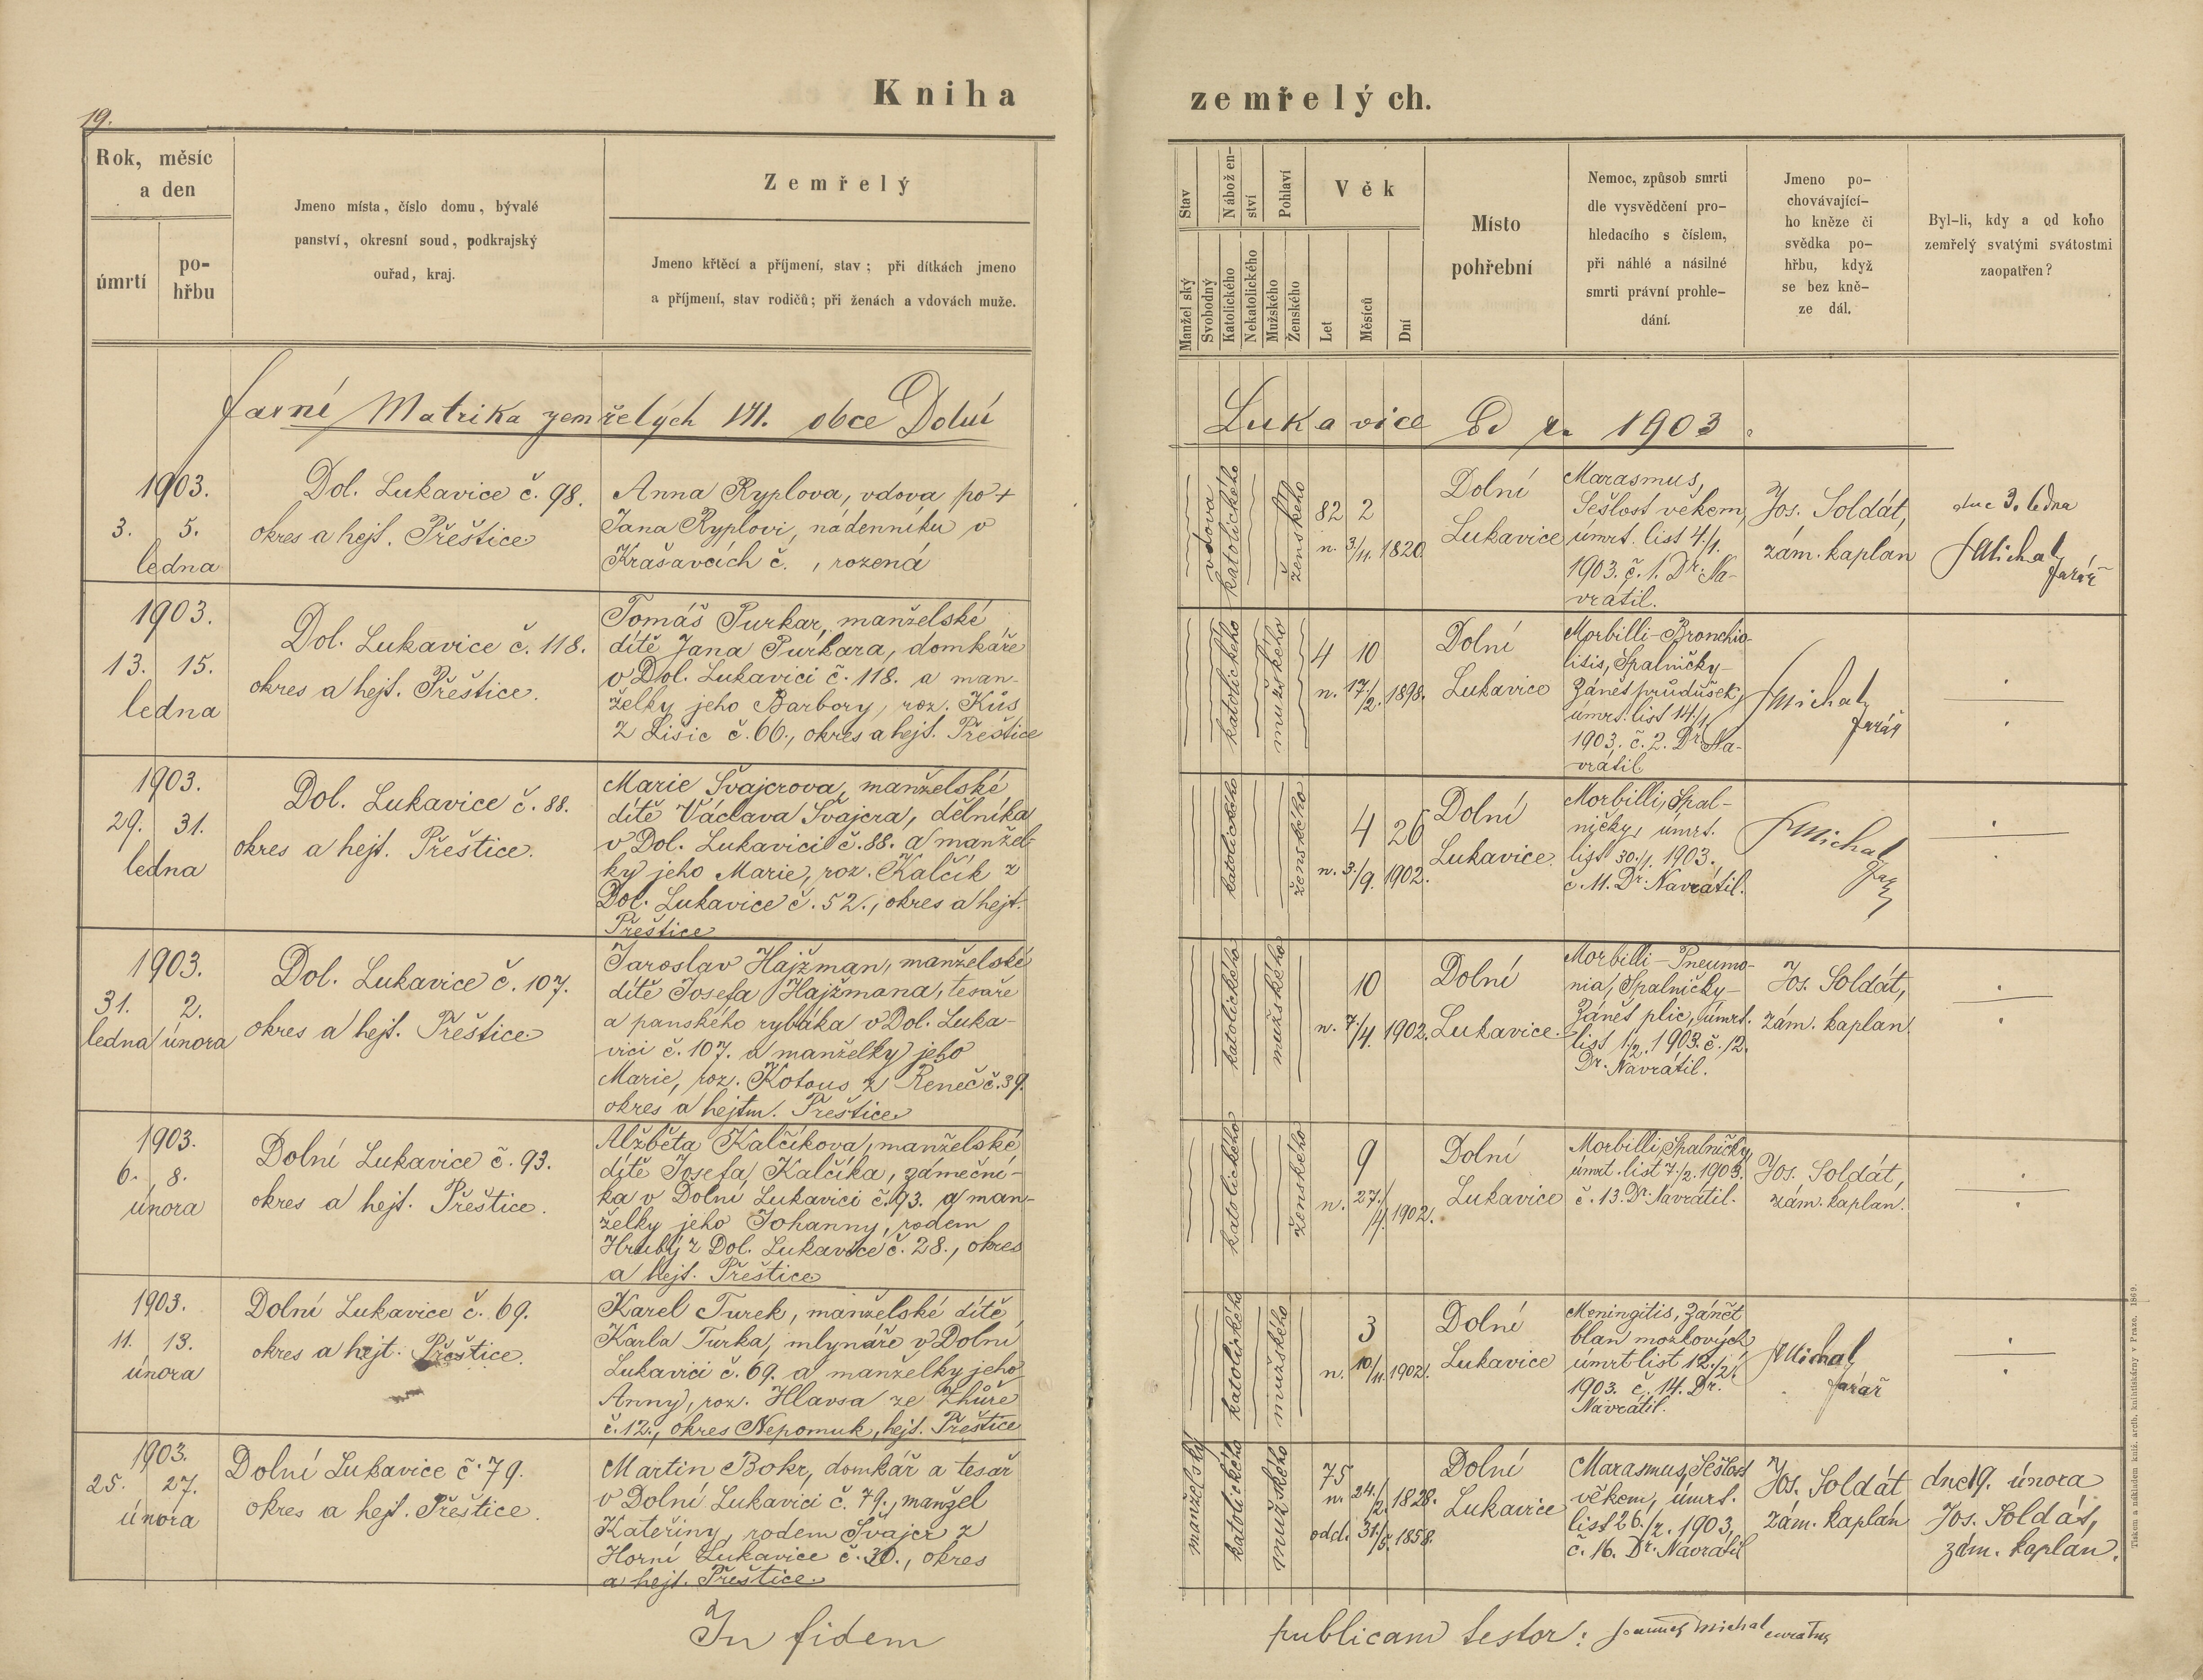 19.
Kniha zemřelých.
Rok, měsíc
a den
úmrtí
po-
hřbu
Jmeno místa, číslo domu, bývalé
panství, okresní soud, podkrajský
ouřad, kraj.
Zemřelý
Jmeno křtěcí a příjmení, stav; při dítkách jmeno
a příjmení, stav rodičů; při ženách a vdovách muže.
Stav
Manželský
Svobodný
Náboženství
Katolického
Nekatolického
Pohlaví
Mužského
Ženského
Věk
Let
Měsíců
Dní
Místo
pohřební
Nemoc, způsob smrti
dle vysvědčení pro-
hledacího s číslem,
při náhlé a násilné
smrti právní prohle-
dání.
Jmeno po-
chovávající-
ho kněze či
svědka po-
hřbu, když
se bez kně-
ze dál.
Byl-li, kdy a od koho
zemřelý svatými svátostmi
zaopatřen?
Farní Matrika zemřelých VII. obce Dolní Lukavice Od r. 1903.
1903.
3. 5.
ledna
Dol. Lukavice č. 98.
okres a hejt. Přeštice
Anna Ryplova, vdova po +
Jana Ryplovi, nádenníku v
Krašavcích č. , rozená
vdova
katolického
ženského
82 2
n. 3/11. 1820.
Dolní
Lukavice
Marasmus,
Sešlost věkem,
úmrt. list 4./1.
1903. č. 1. Dr. Na-
vrátil.
Jos. Soldát,
zám. kaplan
dne 3. ledna
J Michal
farář
1903.
13. 15.
ledna
Dol. Lukavice č. 118.
okres a hejt. Přeštice.
Tomáš Purkar, manželské
dítě Jana Purkara, domkáře
v Dol. Lukavici č. 118. a man-
želky jeho Barbory, roz. Kůs
z Lisic č. 66., okres a hejt. Přeštice
katolického
mužského
4 10
n. 17./2. 1898.
Dolní
Lukavice
Morbilli-Bronchio-
litis, Spalničky-
Zánět průdušek,
úmrt. list 14./1.
1903. č. 2. Dr. Na-
vrátil.
J Michal
farář
1903.
29. 31.
ledna
Dol. Lukavice č. 88.
okres a hejt. Přeštice.
Marie Švajcrova, manželské
dítě Václava Švajcra, dělníka
v Dol. Lukavici č. 88. a manžel-
ky jeho Marie, roz. Kalčík z
Dol. Lukavice č. 52., okres a hejt.
Přeštice
katolického
ženského
4 26
n. 3./9. 1902.
Dolní
Lukavice.
Morbilli, Spal-
ničky, úmrt.
list 30./1. 1903.
č. 11. Dr. Navrátil.
J Michal
1903.
31. 2.
ledna února
Dol. Lukavice č. 107.
okres a hejt. Přeštice
Jaroslav Hajžman, manželské
dítě Josefa Hajžmana, tesaře
a panského rybáka v Dol. Luka-
vici č. 107. a manželky jeho
Marie, roz. Kotous z Reneč č. 39.
okres a hejtm. Přeštice
katolického
mužského
10
n. 7./4. 1902.
Dolní
Lukavice.
Morbilli-Pneumo-
nia, Spalničky-
Zánět plic, úmrt.
list 1./2. 1903. č. 12.
Dr. Navrátil.
Jos. Soldát,
zám. kaplan.
1903.
6. 8.
února
Dolní Lukavice č. 93.
okres a hejt. Přeštice.
Alžběta Kalčíkova, manželské
dítě Josefa Kalčíka, zámeční-
ka v Dolní Lukavici č. 93. a man-
želky jeho Johanny, rodem
Hrubý z Dol. Lukavice č. 28., okres
a hejt. Přeštice
katolického
ženského
9
n. 27./4. 1902.
Dolní
Lukavice
Morbilli, Spalničky,
úmrt. list 7./2. 1903.
č. 13. Dr. Navrátil.
Jos. Soldát,
zám. kaplan.
1903.
11. 13.
února
Dolní Lukavice č. 69.
okres a hejt. Přeštice.
Karel Turek, manželské dítě
Karla Turka, mlynáře v Dolní
Lukavici č. 69. a manželky jeho
Anny, roz. Hlavsa ze Zhůře
č. 12., okres Nepomuk, hejt. Přeštice
katolického
mužského
3
n. 10/11. 1902.
Dolní
Lukavice
Meningitis, Zánět
blan mozkových
úmrt list 12./2.
1903. č. 14. Dr.
Navrátil.
J Michal
farář
1903.
25. 27.
února
Dolní Lukavice č. 79.
okres a hejt. Přeštice.
Martin Bokr, domkář a tesař
v Dolní Lukavici č. 79., manžel
Kateřiny, rodem Švajcr z
Horní Lukavice č. 30., okres
a hejt. Přeštice.
manželský
katolického
mužského
75
n. 24./2. 1828.
odd. 31./5. 1858.
Dolní
Lukavice
Marasmus, Sešlost
věkem, úmrt.
list 26./2. 1903,
č. 16. Dr. Navrátil
Jos. Soldát
zám. kaplan
dne 19. února
Jos. Soldát,
zám. kaplan.
In fidem publicam testor: Joannes Michal curatus
Tiskem a nákladem kníž. arcib. knihtiskárny v Praze. 1869.